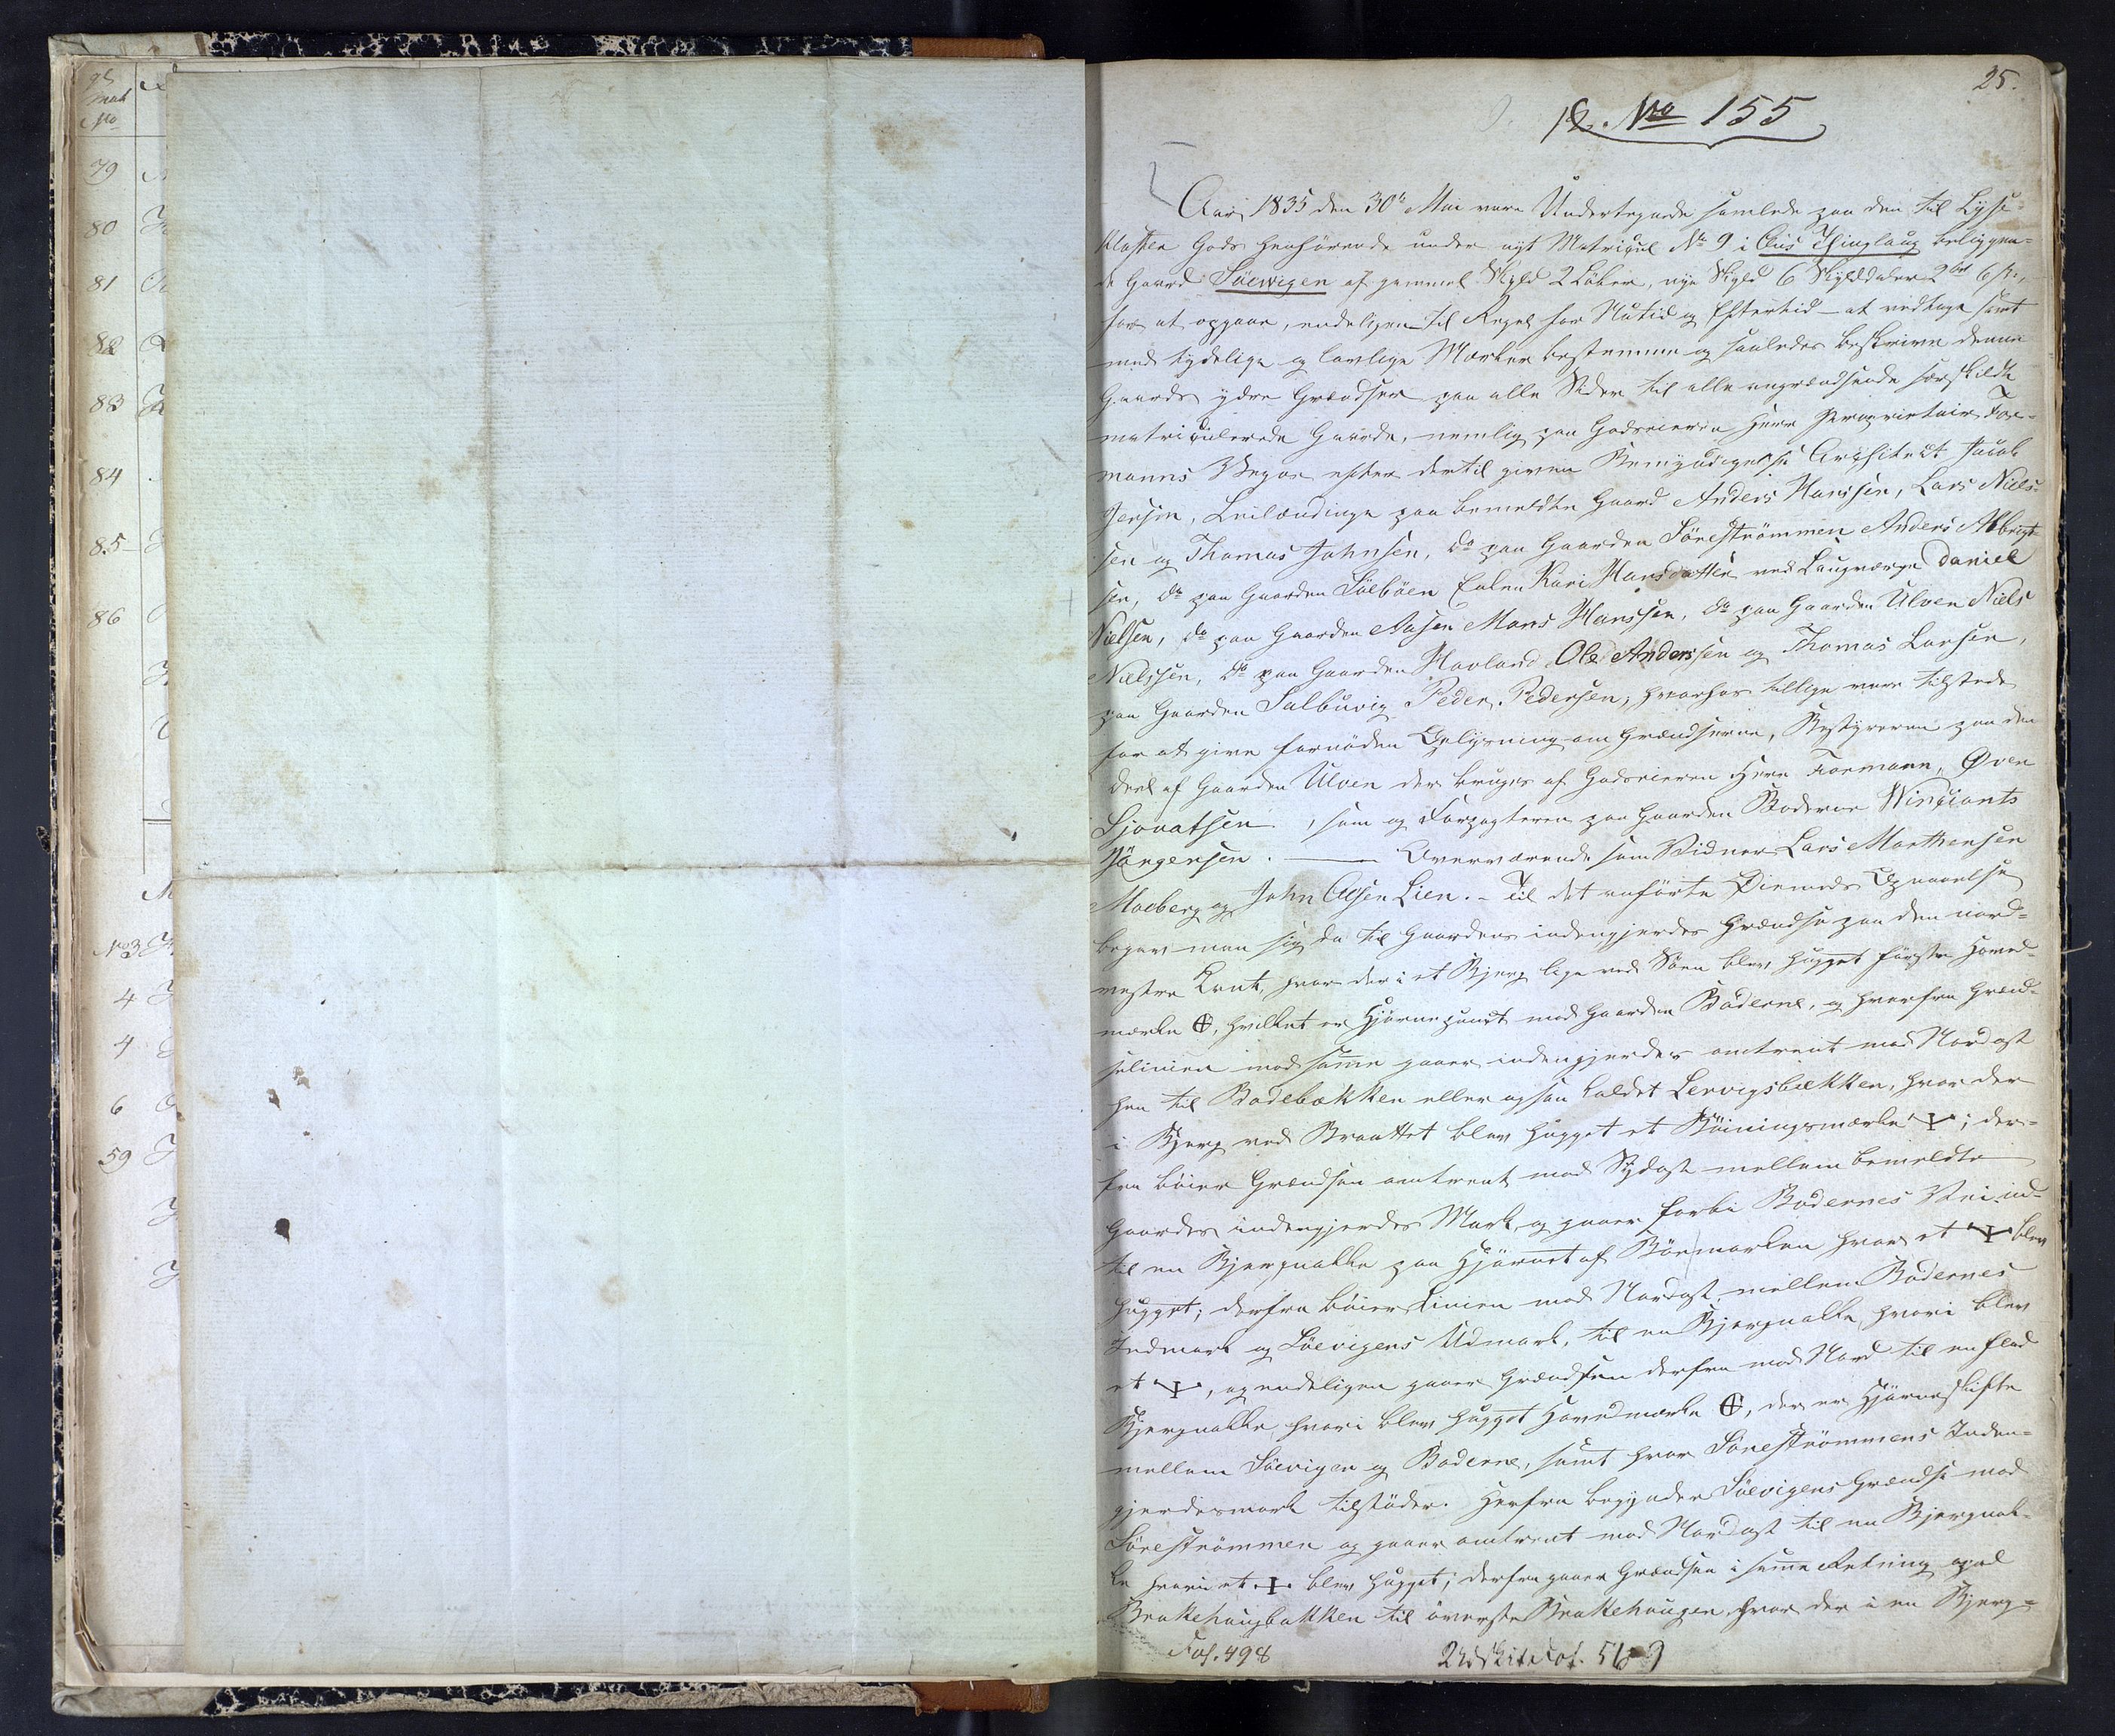 25.
No 155
Aar 1835 den 30te Mai vare Undertegnede samlede paa den til Lyse-
klosters Gods henhørende under nyt Matricul No 9 i Ous Thinglaug beliggen-
de Gaard Söevigen af gammel Skyld 2 Løber, nye Skyld 6 Skylddaler 2 ort 6 s.,
for at opgaae, endeligen til Regel for Nutid og Eftertid at vedtage samt
med tydelige og lovlige Mærker bestemme og saaledes beskrive denne
Gaards ydre Grændser paa alle Sider til alle angrændsende særskildt
matriculerede Gaarde, nemlig paa Godseieren Herr Proprietair For-
manns Vegne efter dertil given Bemyndigelse Architect Jacob
Jensen, Leilændinge paa bemeldte Gaard Anders Hanssen, Lars Niels-
sen og Thomas Johnsen, do paa Gaarden Söreströmmen Anders Albrigt-
sen, do paa Gaarden Söeböen Enken Kari Hansdatter ved Laugværge Daniel
Nielsen, do paa Gaarden Aasen Mons Hanssen, do paa Gaarden Ulven Niels
Nielssen, do paa Gaarden Havland Ole Anderssen og Thomas Larsen,
paa Gaarden Salbuvig Peder Pedersen, hvorhos tillige vare tilstede
for at give fornöden Oplysning om Grændserne, Bestyreren paa den
Deel af Gaarden Ulven der bruges af Godseieren Herr Formann, Øven
Sjovatsen, som og Forpagteren paa Gaarden Boderne Winciants
Jörgensen. — Overværende som Vidner Lars Marthensen
Moberg og John Olsen Lien. – Til det anförte Øiemeds Opnaaelse
begav man sig da til Gaardens indengjerdes Grændse paa den nord-
vestre Kant, hvor der i et Bjerg lige ved Söen blev hugget förste Hoved-
mærke ⊕, hvilket er Hjørnepunct mod Gaarden Böderne, og hvorfra Grænd-
selinien mod samme gaaer indengjerdes omtrent mod Nordost
hen til Bodebækken eller ogsaa kaldet Lervigsbækken, hvor der
i Bjerg ved Braattet blev hugget et Böiningsmærke; der-
fra böier Grændsen omtrent mod Sydost mellem bemeldte
Gaardes indengjerdes Mark, og gaaer forbi Bödernes Vei ind-
til en Bjergnakke paa Hjørnet af Böemarken hvor et blev
hugget; derfra böier Linien mod Nordost, mellem Bödernes
Indmark og Söevigens Udmark, til en Bjergnakke, hvori blev
et, og endeligen gaaer Grændsen derfra mod Nord til en flad
Bjergnakke, hvori blev hugget Hovedmærke ⊕, der er Hjörneskifte
mellem Söevigen og Boderne, samt hvor Söreströmmens Inden-
gjerdesmark tilstöder. Herfra begynder Söevigens Grændse mod
Söreströmmen og gaaer omtrent mod Nordost til en Bjergnak-
ke hvori et blev hugget; derfra gaaer Grændsen i samme Retning opad
Brakehaugbakken til överste Brakehaugen, hvor der i en Bjerg-
Fol. 498
79
80
81
82
83
84
85
86
No 3
4
4
6
59